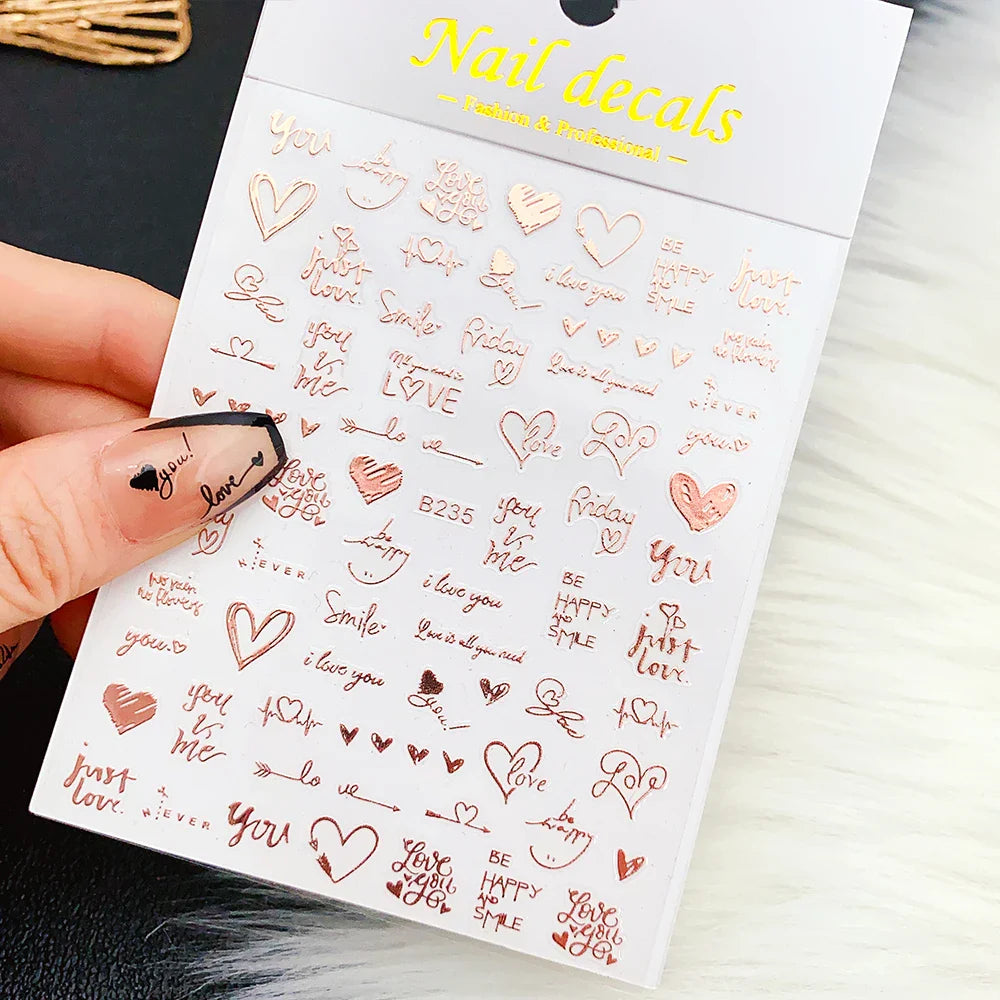 Nail decals
— Fashion & Professional —
you
be
happy
Love
you
just
love.
you!
i love you
BE
HAPPY
AND
SMILE
just
love.
Smile
friday
no rain
no flowers
you
&
me
LOVE
Love is all you need
EVER
you.
lo ve
love
Love
you!
love
Love
you
B235
you
&
me
friday
you
friday
EVER
be
happy
i love you
BE
HAPPY
AND
SMILE
just
love.
no rain
no flowers
Smile
Love is all you need
you.
i love you
you!
you
&
me
lo ve
love
Love
just
love.
EVER
you
be
happy
Love
you
BE
HAPPY
AND
SMILE
Love
you